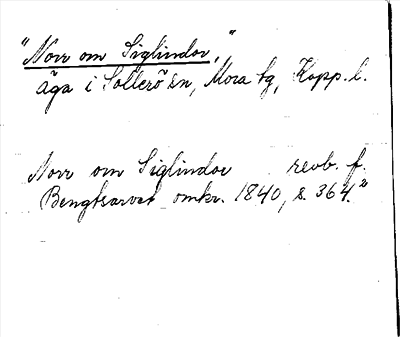 "Norr om Siglindor,"
äga i Sollerö sn, Mora tg, Kopp. l.
Norr om Siglindor revb. f.
Bengtsarvet omkr. 1840, s. 364.²